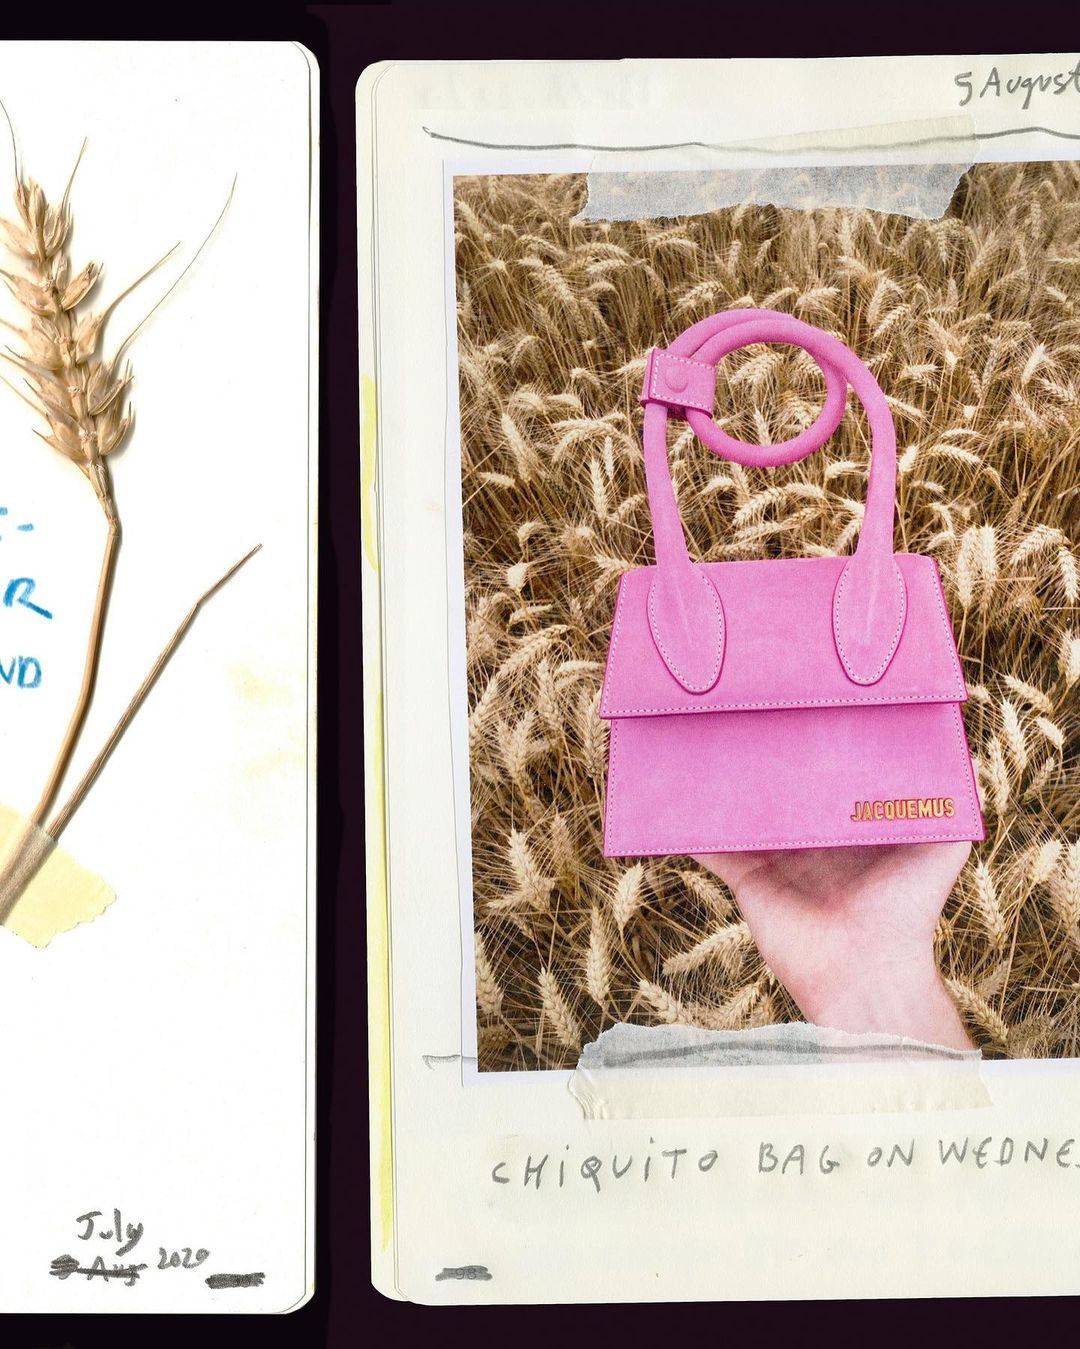 R
ND
July
2020
5 August
JACQUEMUS
CHiQUiTO BAG ON WEDNES